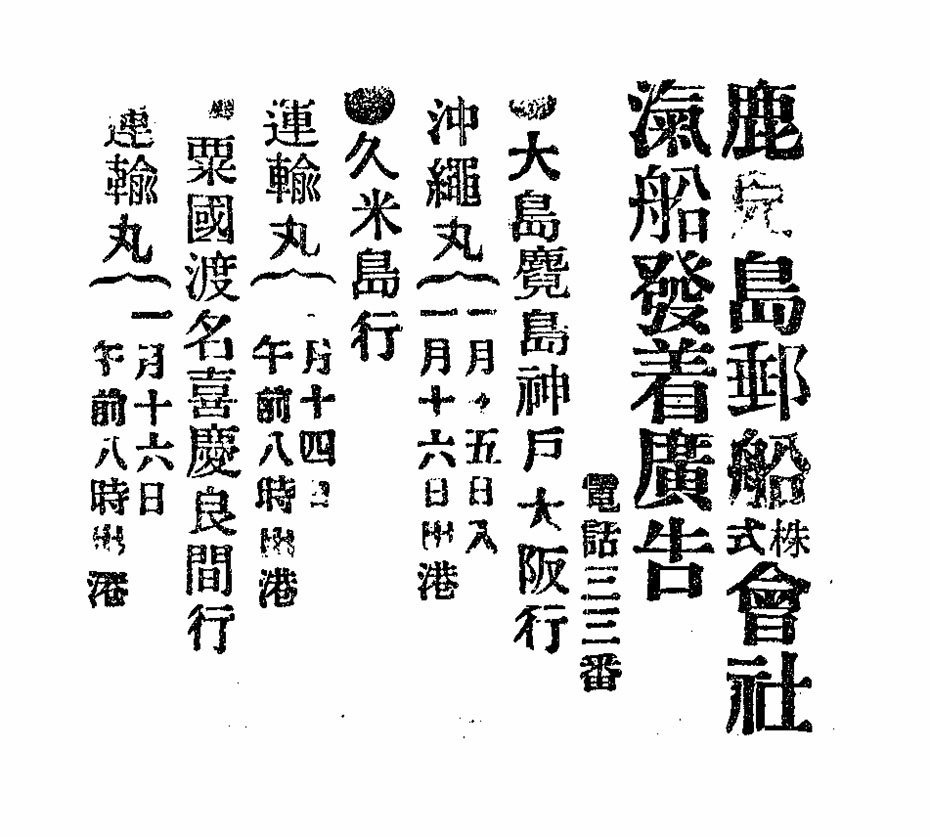 鹿兒島郵船株式會社
滊船發着廣告
電話三三番
●大島鹿兒島神戸大阪行
沖繩丸
一月十五日入
一月十六日出港
●久米島行
運輸丸
一月十四日
午前八時出港
●粟國渡名喜慶良間行
運輸丸
一月十六日
午前八時出港